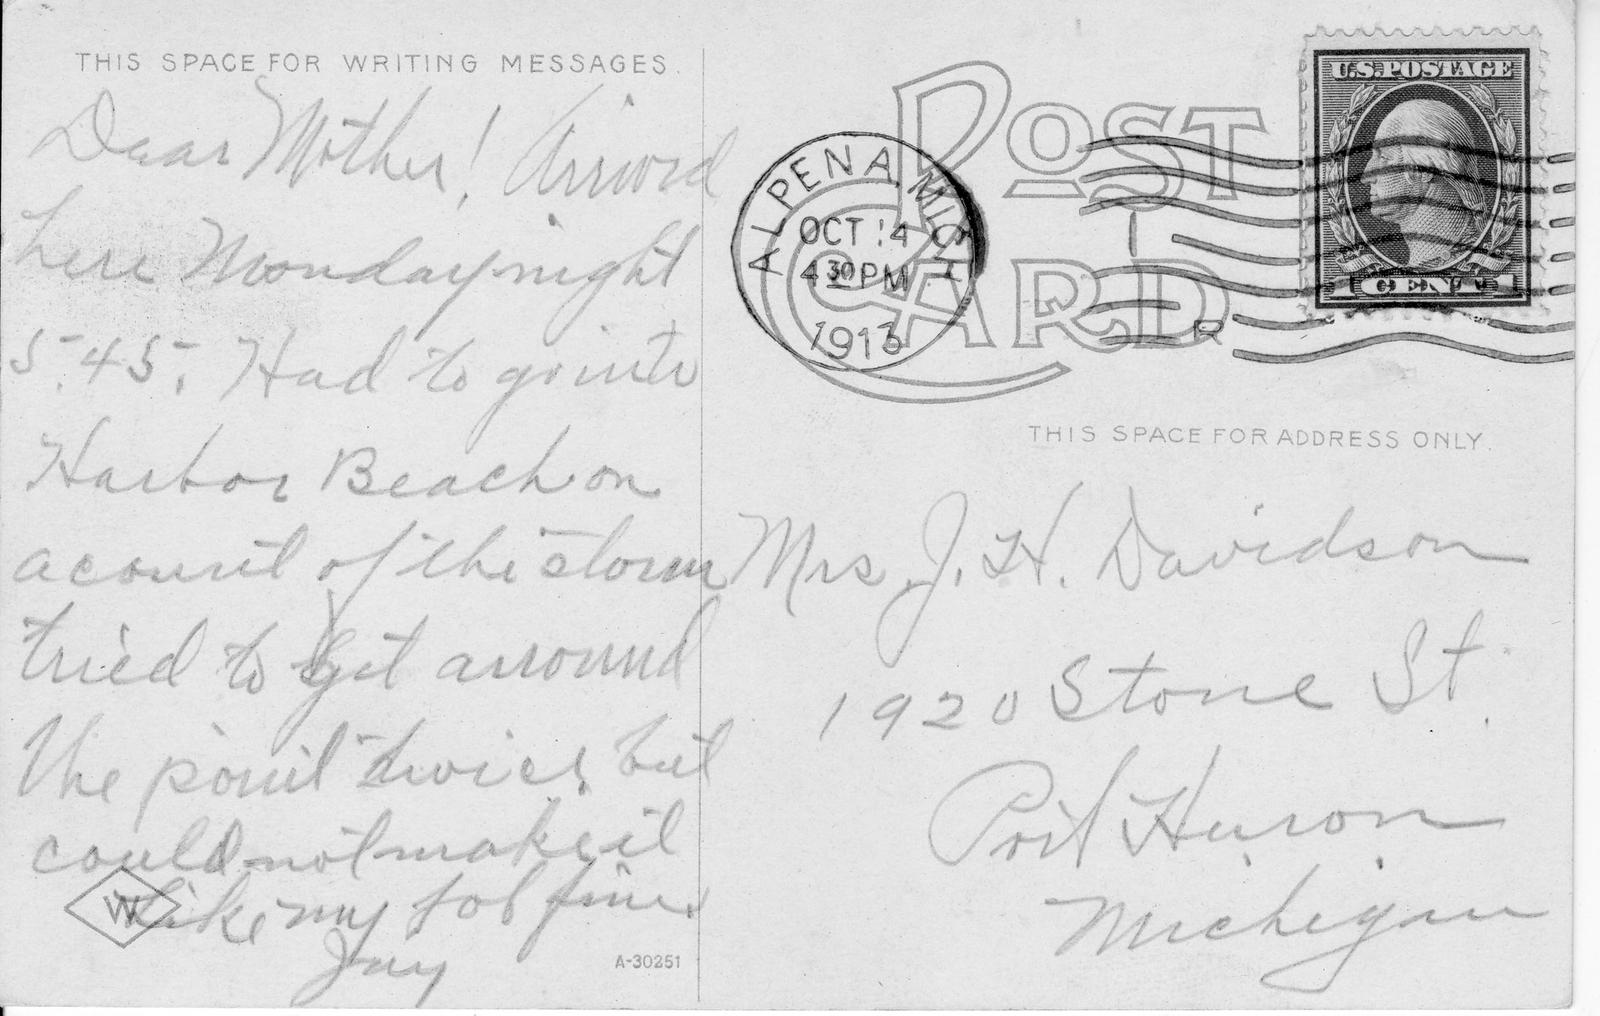 THIS SPACE FOR WRITING MESSAGES.
Dear Mother! Arrived
here Monday night
5.45. Had to go into
Harbor Beach on
acount of the storm
tried to get arround
the point twice, but
could not make it
Like my job fine.
Jay
W
A-30251
POST CARD
ALPENA, MICH.
OCT 14
4 30 PM
1913
R
U.S. POSTAGE
1 CENT 1
THIS SPACE FOR ADDRESS ONLY.
Mrs. J. H. Davidson
1920 Stone St.
Port Huron
Michigan